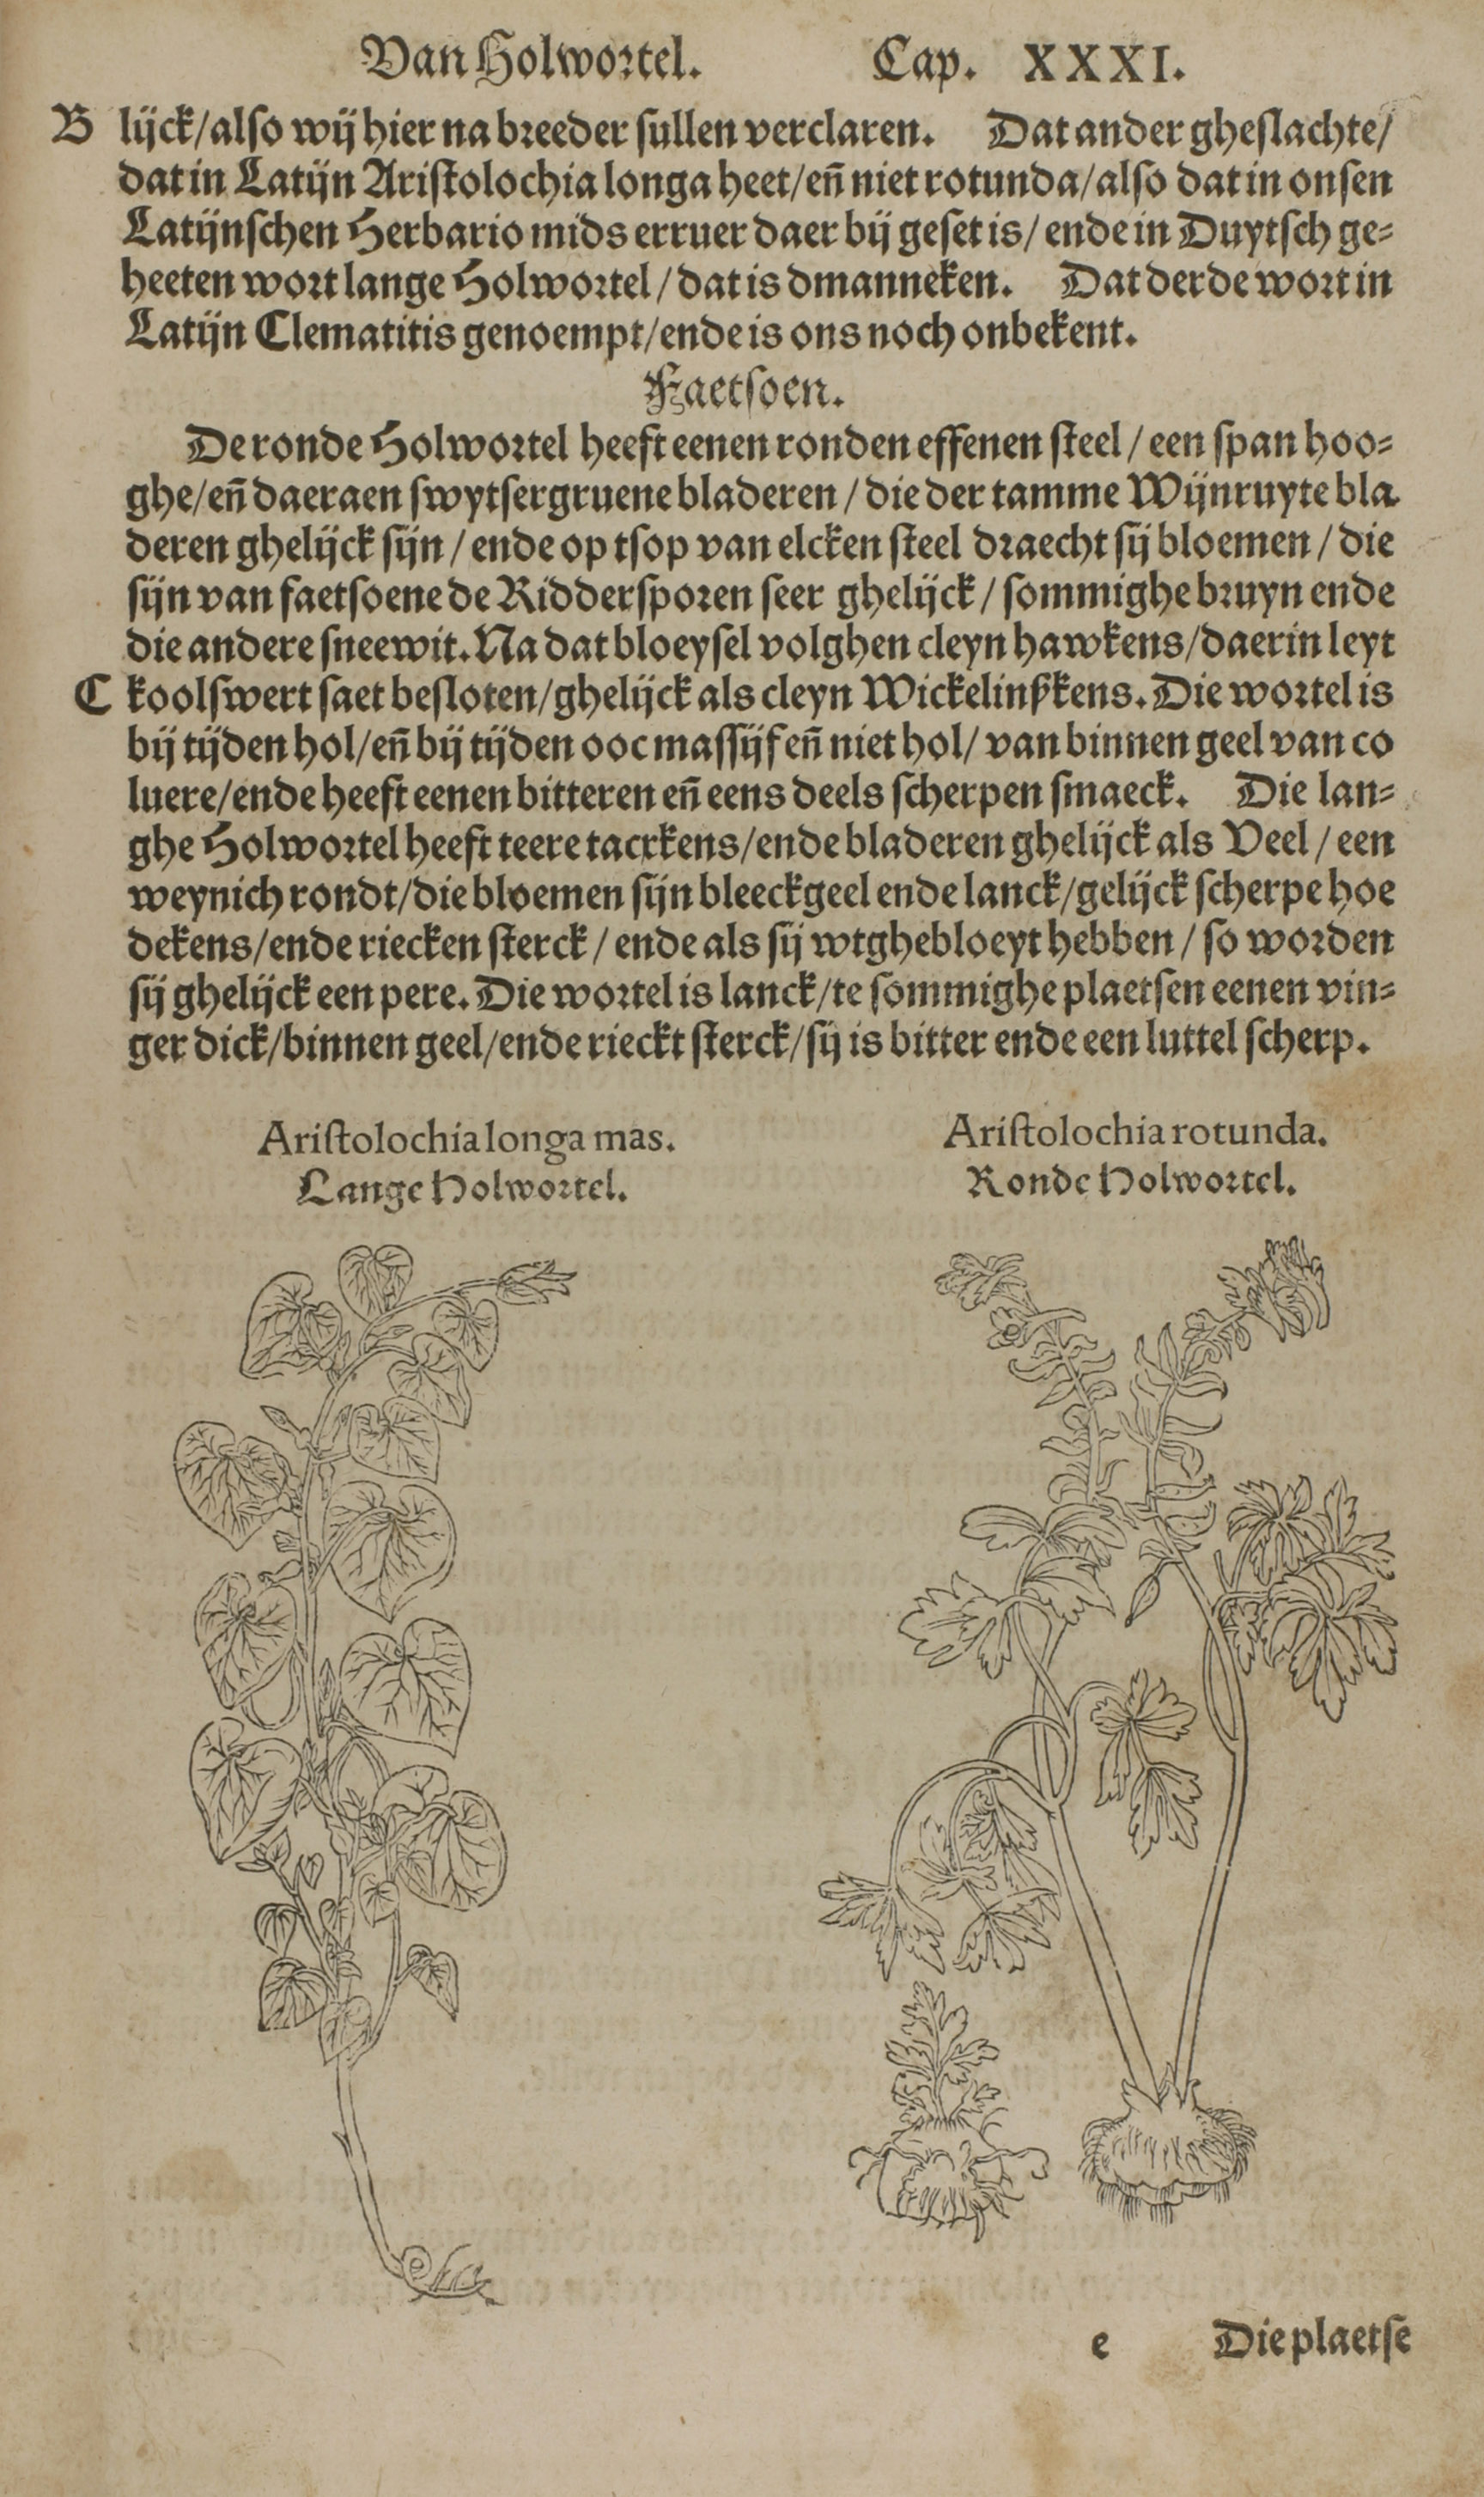 Van Holwortel. Cap. XXXI.
B lijck/also wij hier na breeder sullen verclaren. Dat ander gheslachte/
dat in Latijn Aristolochia longa heet/eñ niet rotunda/also dat in onsen
Latijnschen Herbario mids erruer daer bij geset is/ende in Duytsch ge-
heeten wort lange Holwortel/dat is dmanneken. Dat derde wort in
Latijn Clematitis genoempt/ende is ons noch onbekent.
Faetsoen.
De ronde Holwortel heeft eenen ronden effenen steel/een span hoo-
ghe/eñ daer aen swytsergruene bladeren/die der tamme Wijnruyte bla
deren ghelijck sijn/ende op tsop van elcken steel draecht sij bloemen/die
sijn van faetsoene de Riddersporen seer ghelijck/sommighe bruyn ende
die andere sneewit. Na dat bloeysel volghen cleyn hawkens/daer in leyt
C koolswert saet besloten/ghelijck als cleyn Wickelinßkens. Die wortel is
bij tijden hol/eñ bij tijden ooc massijf eñ niet hol/van binnen geel van co
luere/ende heeft eenen bitteren eñ eens deels scherpen smaeck. Die lan-
ghe Holwortel heeft teere tacxkens/ende bladeren ghelijck als Veel/een
weynich rondt/die bloemen sijn bleeckgeel ende lanck/gelijck scherpe hoe
dekens/ende riecken sterck/ende als sij wtghebloeyt hebben/so worden
sij ghelijck een pere. Die wortel is lanck/te sommighe plaetsen eenen vin-
ger dick/binnen geel/ende rieckt sterck/sij is bitter ende een luttel scherp.
Aristolochia longa mas.
Lange Holwortel.
Aristolochia rotunda.
Ronde Holwortel.
e Die plaetse